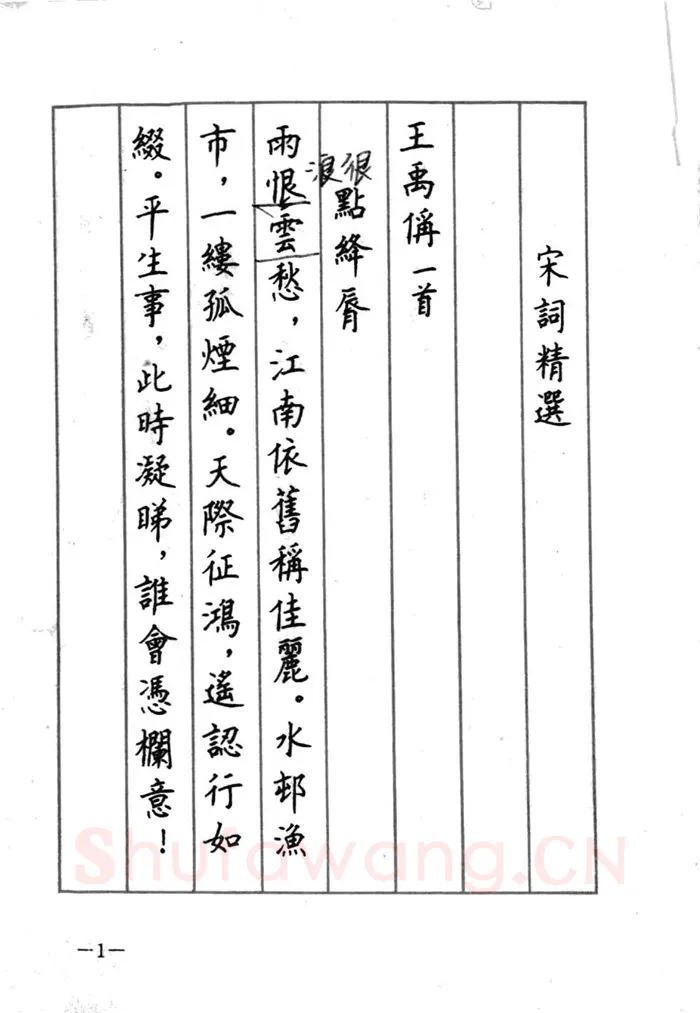 宋詞精選
王禹偁一首
點絳脣
浪很
雨恨雲愁，江南依舊稱佳麗。水邨漁
市，一縷孤煙細。天際征鴻，遙認行如
綴。平生事，此時凝睇，誰會憑欄意！
Shufawang.CN
—1—